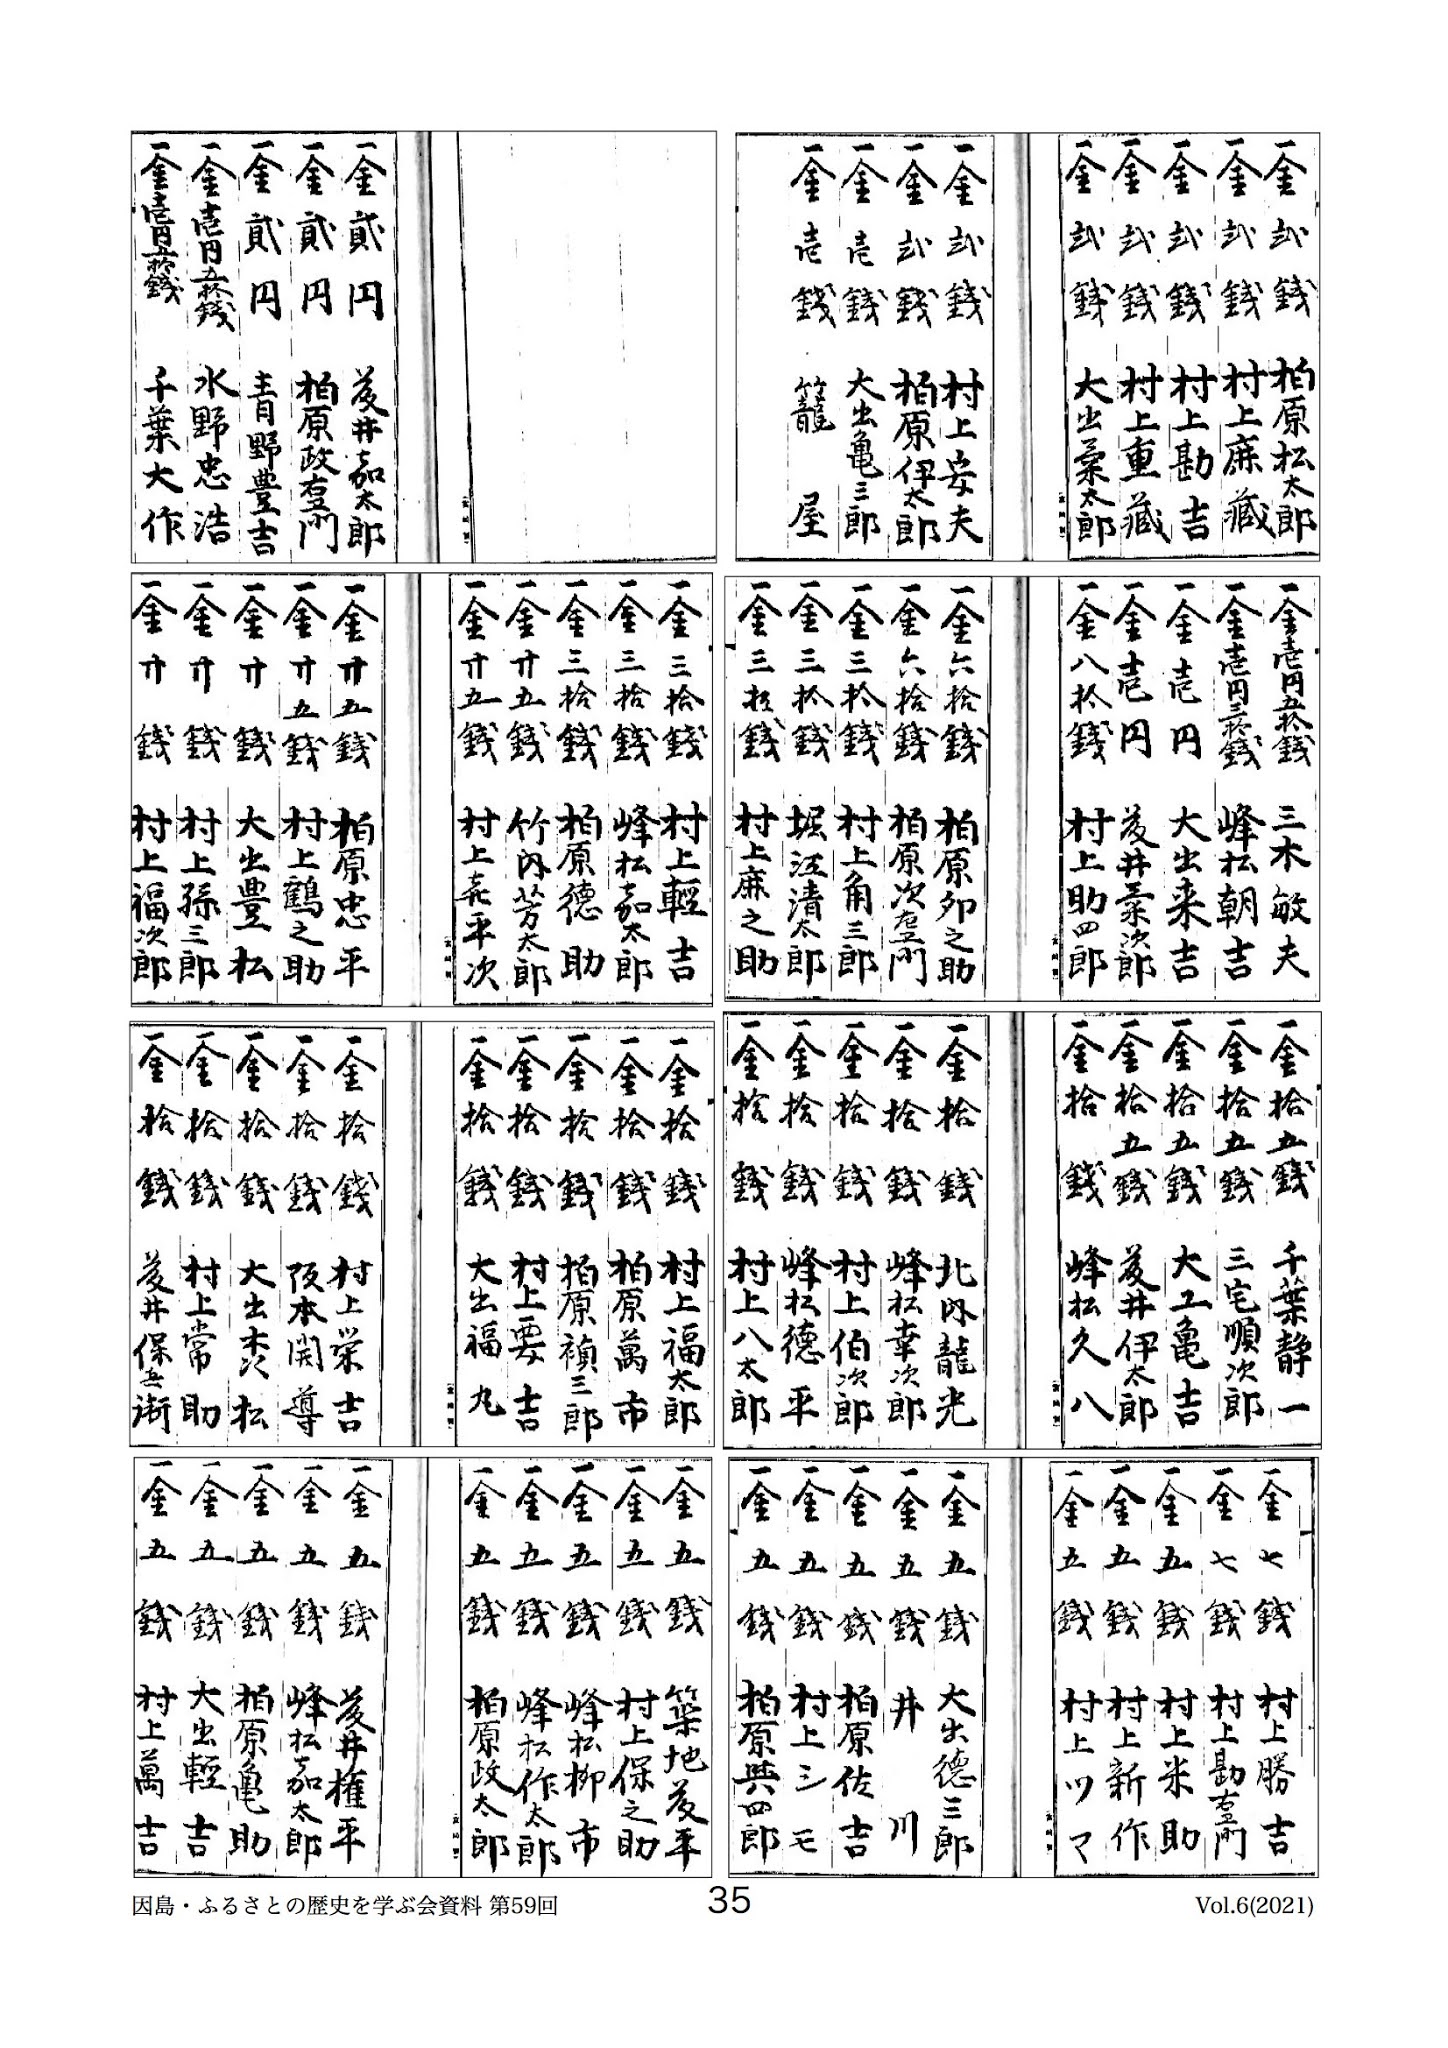 一金弐銭 柏原松太郎
一金弐銭 村上麻藏
一金弐銭 村上勘吉
一金弐銭 村上重藏
一金弐銭 大出粂太郎
一金弐銭 村上安夫
一金弐銭 柏原伊太郎
一金壱銭 大出亀三郎
一金壱銭 籠屋
一金貳円 藤井嘉太郎
一金貳円 柏原政右衛門
一金貳円 青野豊吉
一金壱円五拾銭 水野忠浩
一金壱円五拾銭 千葉大作
一金壱円五拾銭 三木敏夫
一金壱円三拾銭 峰松朝吉
一金壱円 大出来吉
一金壱円 藤井粂次郎
一金八拾銭 村上助四郎
一金六拾銭 柏原卯之助
一金六拾銭 柏原次右衛門
一金三拾銭 村上角三郎
一金三拾銭 堀江清太郎
一金三拾銭 村上麻之助
一金三拾銭 村上輕吉
一金三拾銭 峰松嘉太郎
一金三拾銭 柏原德助
一金廿五銭 竹内芳太郎
一金廿五銭 村上喜平次
一金廿五銭 柏原忠平
一金廿五銭 村上鶴之助
一金廿銭 大出豊松
一金廿銭 村上孫三郎
一金廿銭 村上福次郎
一金拾五銭 千葉静一
一金拾五銭 三宅順次郎
一金拾五銭 大工亀吉
一金拾五銭 藤井伊太郎
一金拾銭 峰松久八
一金拾銭 北内龍光
一金拾銭 峰松幸次郎
一金拾銭 村上伯次郎
一金拾銭 峰松德平
一金拾銭 村上八太郎
一金拾銭 村上福太郎
一金拾銭 柏原萬市
一金拾銭 柏原禎三郎
一金拾銭 村上要吉
一金拾銭 大出福丸
一金拾銭 村上栄吉
一金拾銭 阪本開導
一金拾銭 大出松
一金拾銭 村上常助
一金拾銭 藤井保兵衛
一金七銭 村上勝吉
一金七銭 村上勘右衛門
一金五銭 村上米助
一金五銭 村上新作
一金五銭 村上ツマ
一金五銭 大出德三郎
一金五銭 井川
一金五銭 柏原佐吉
一金五銭 村上シモ
一金五銭 柏原與四郎
一金五銭 築地藤平
一金五銭 村上保之助
一金五銭 峰松柳市
一金五銭 峰松作太郎
一金五銭 柏原政太郎
一金五銭 藤井権平
一金五銭 峰松嘉太郎
一金五銭 柏原亀助
一金五銭 大出輕吉
一金五銭 村上萬吉
因島・ふるさとの歴史を学ぶ会資料 第59回
35
Vol.6(2021)